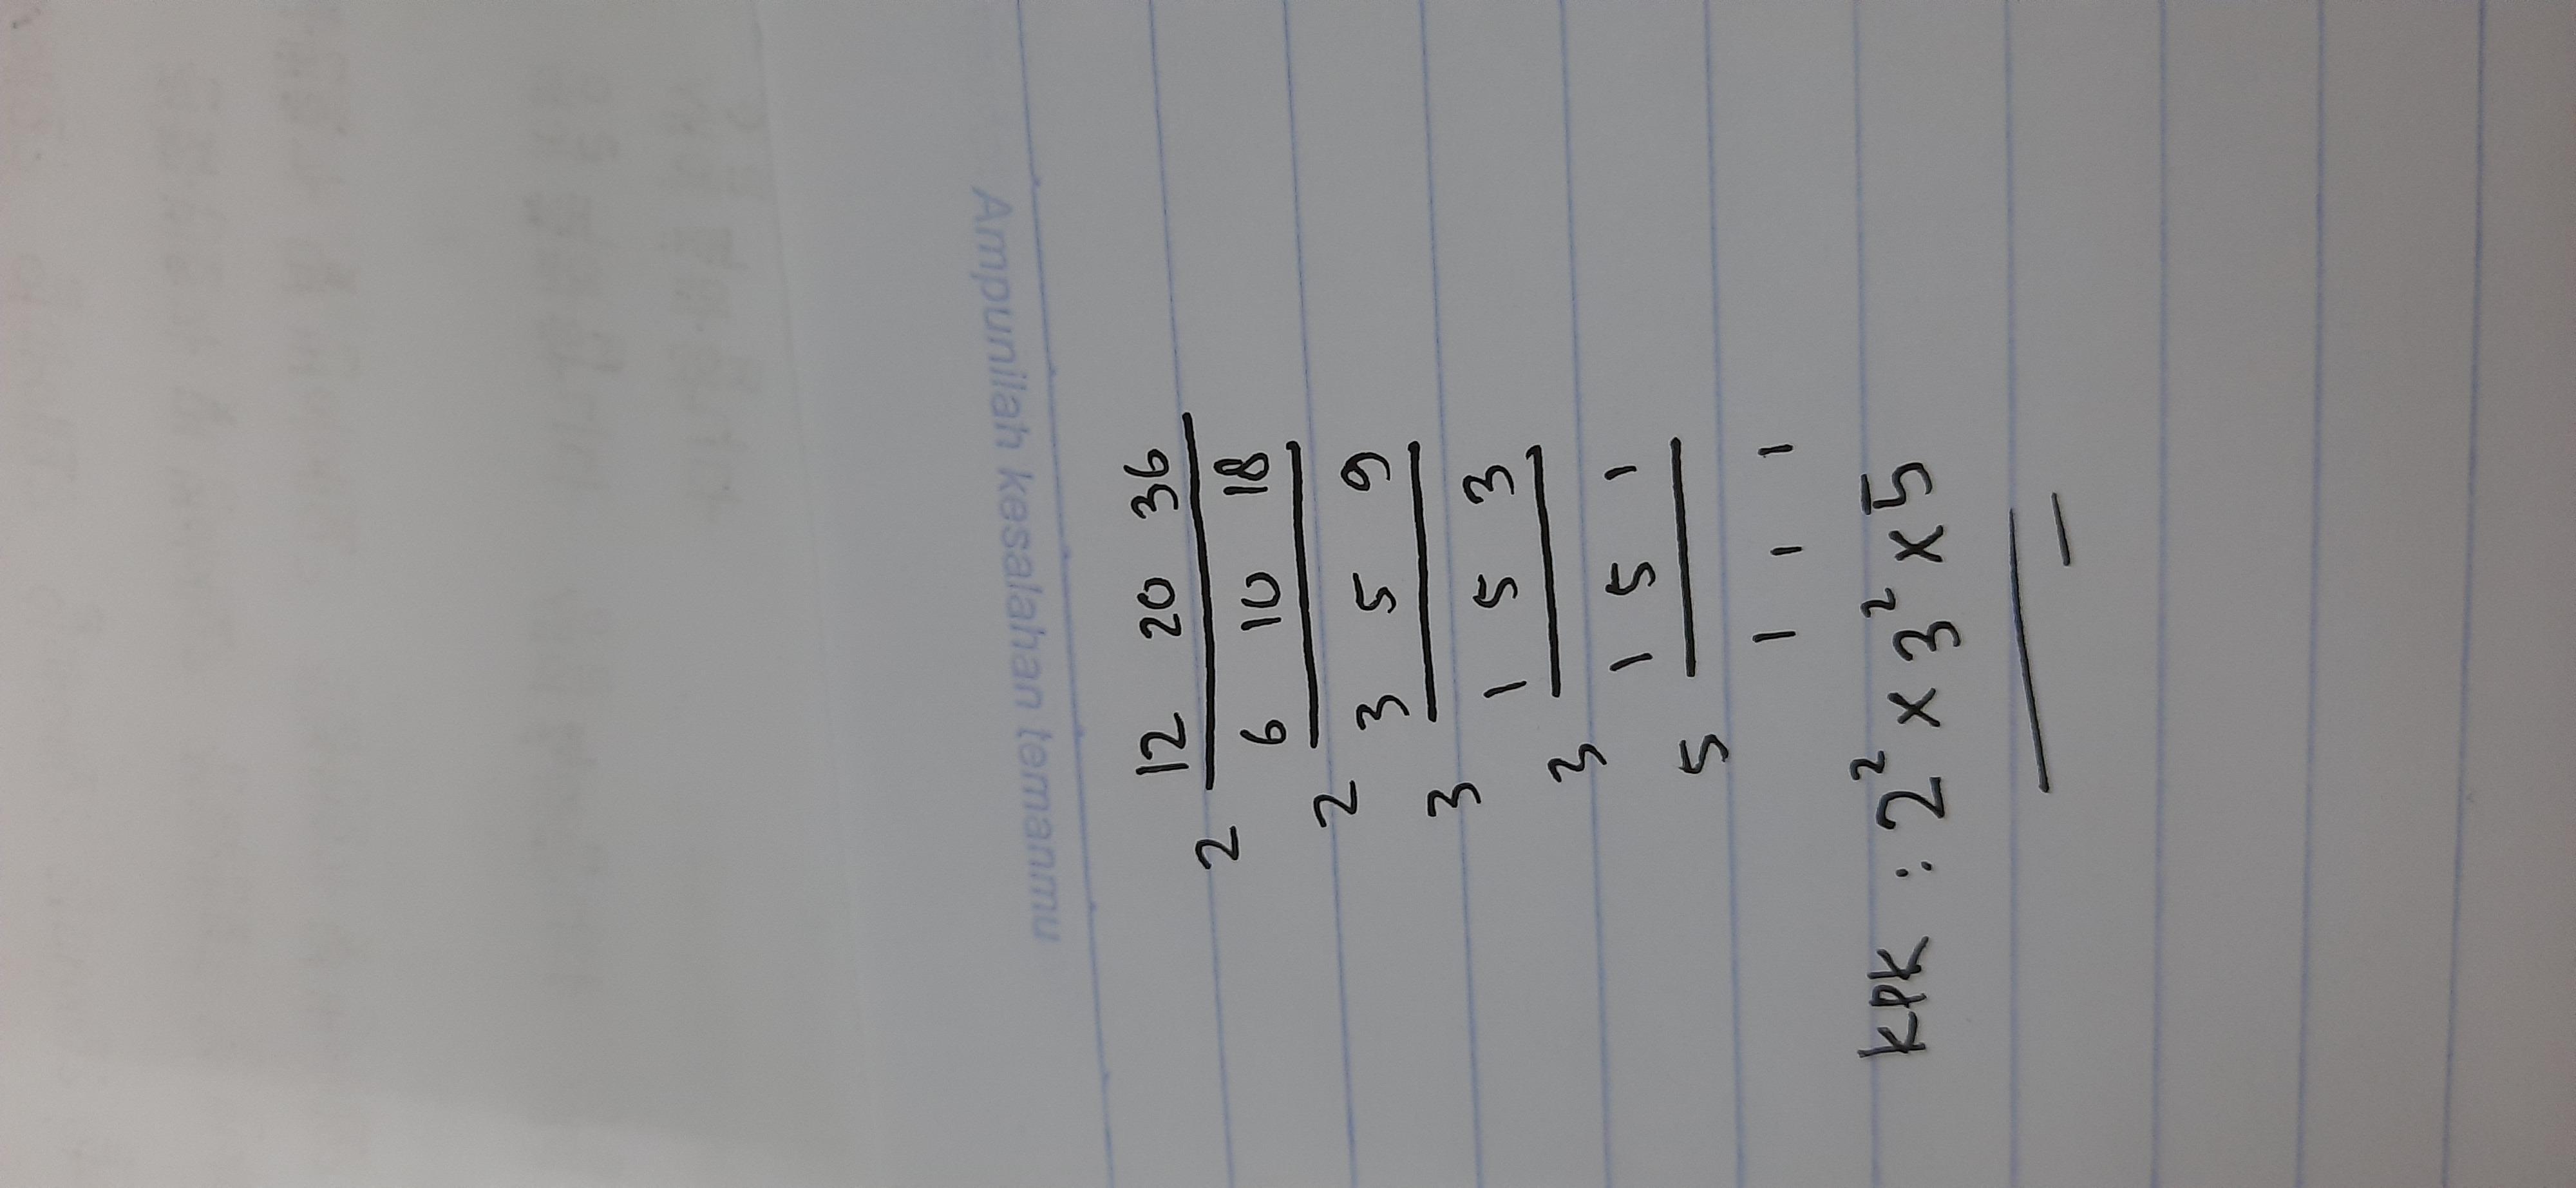 Ampunilah kesalahan temanmu
12 20 36
2
6 10 18
2
3 5 9
3
1 5 3
3
1 5 1
5
1 1 1
KPK : 2² x 3² x 5